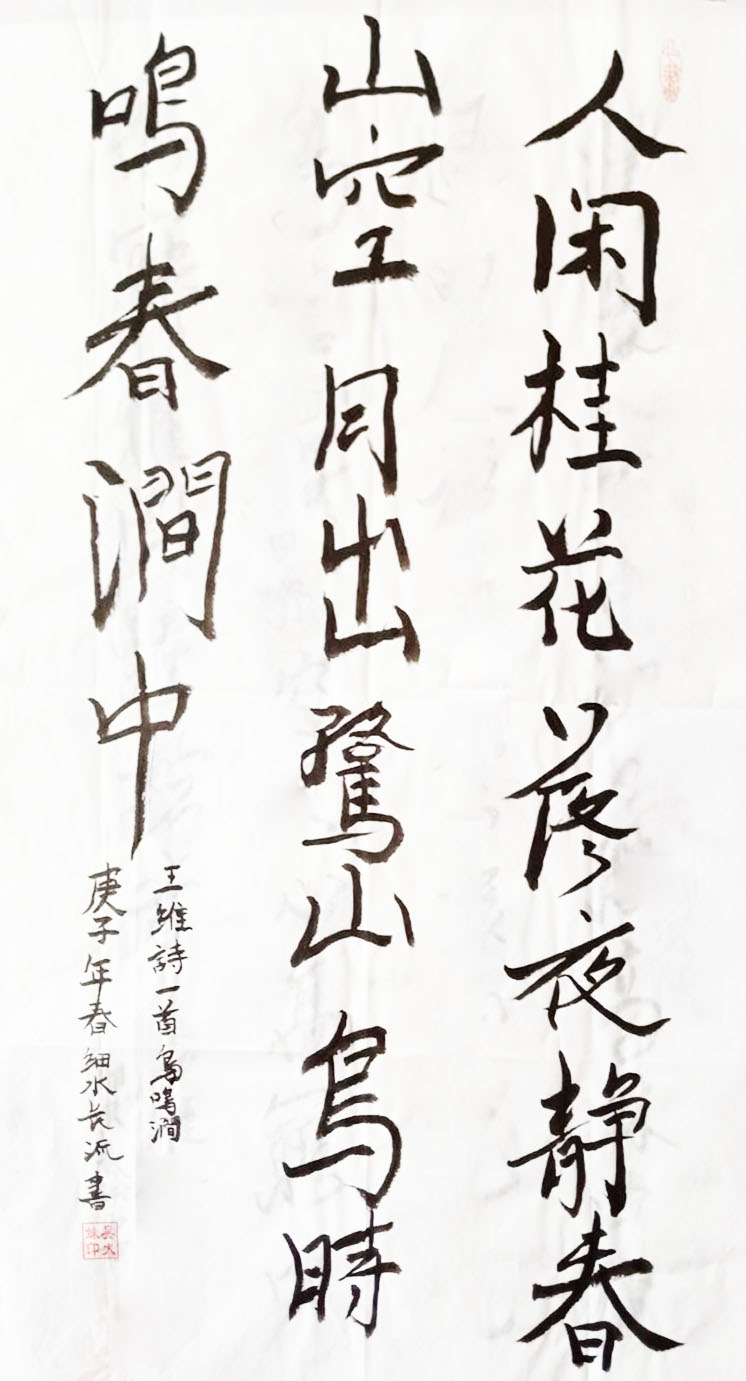 人闲桂花落夜静春
山空月出驚山鸟時
鳴春澗中
王維詩一首鸟鳴澗
庚子年春细水长流書